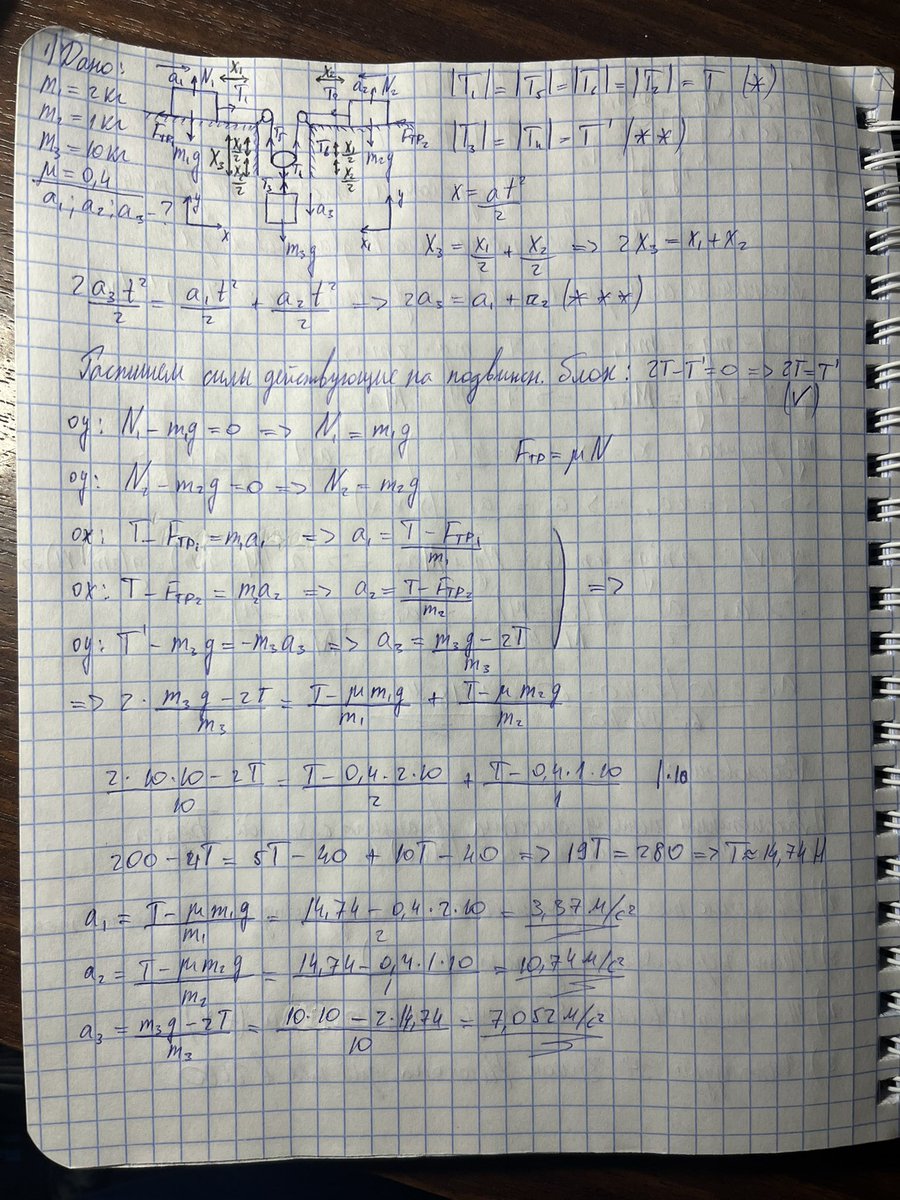 1) Дано:
m₁ = 2кг
m₂ = 1кг
m₃ = 10кг
μ = 0,4
a₁; a₂; a₃ - ?
a₁ N₁ x₁/2 T₁ x₂/2 T₂ a₂ N₂
Fтр₁ m₁g x₃ x₁/2 x₂/2 T₅ T₆ T₆ x₁/2 x₂/2 m₂g Fтр₂
T₃ a₃ m₃g
y x y x₁
|T₁| = |T₅| = |T₆| = |T₂| = T (*)
|T₃| = |T₄| = T' (**)
x = at²/2
x₃ = x₁/2 + x₂/2 => 2x₃ = x₁ + x₂
2a₃t²/2 = a₁t²/2 + a₂t²/2 => 2a₃ = a₁ + a₂ (***)
Распишем силы действующие на подвижн. блок: 2T - T' = 0 => 2T = T'
(V)
оy: N₁ - m₁g = 0 => N₁ = m₁g
Fтр = μN
оy: N₂ - m₂g = 0 => N₂ = m₂g
ох: T - Fтр₁ = m₁a₁ => a₁ = (T - Fтр₁)/m₁
ох: T - Fтр₂ = m₂a₂ => a₂ = (T - Fтр₂)/m₂ =>
оy: T' - m₃g = -m₃a₃ => a₃ = (m₃g - 2T)/m₃
=> 2 · (m₃g - 2T)/m₃ = (T - μm₁g)/m₁ + (T - μm₂g)/m₂
(2 · 10·10 - 2T)/10 = (T - 0,4·2·10)/2 + (T - 0,4·1·10)/1 |·10
200 - 4T = 5T - 40 + 10T - 40 => 19T = 280 => T ≈ 14,74 Н
a₁ = (T - μm₁g)/m₁ = (14,74 - 0,4·2·10)/2 = 3,37 м/с²
a₂ = (T - μm₂g)/m₂ = (14,74 - 0,4·1·10)/1 = 10,74 м/с²
a₃ = (m₃g - 2T)/m₃ = (10·10 - 2·14,74)/10 = 7,052 м/с²